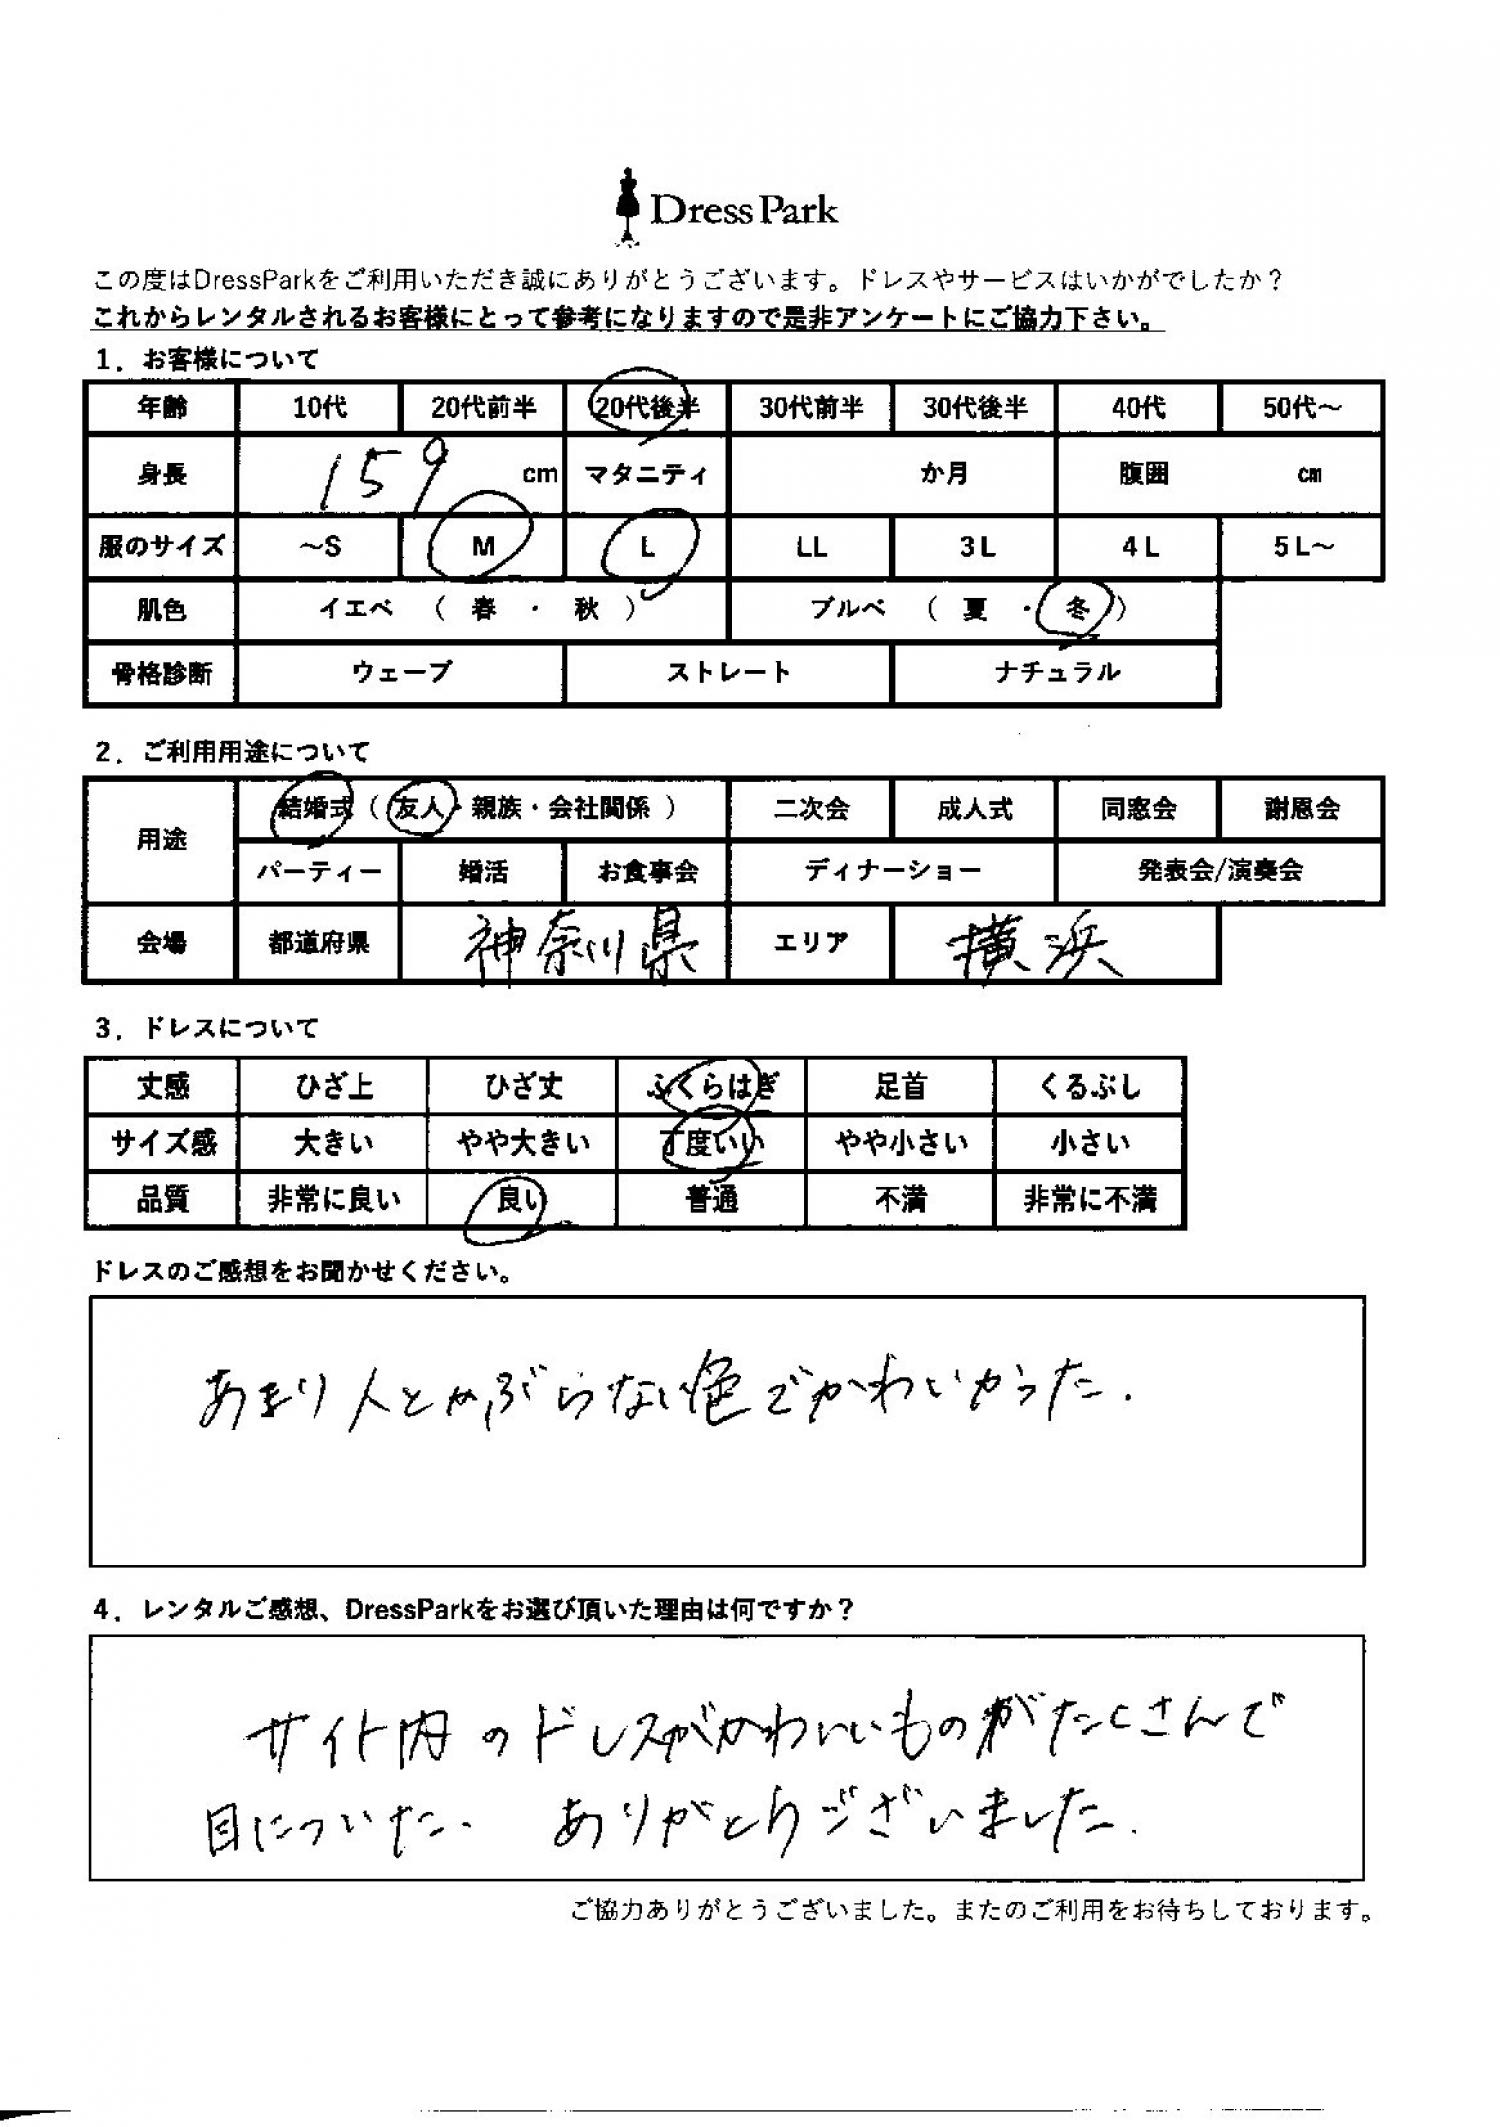 Dress Park
この度はDressParkをご利用いただき誠にありがとうございます。ドレスやサービスはいかがでしたか？
これからレンタルされるお客様にとって参考になりますので是非アンケートにご協力下さい。
1．お客様について
年齢 10代 20代前半 20代後半 30代前半 30代後半 40代 50代～
身長 159 cm マタニティ か月 腹囲 cm
服のサイズ ～S M L LL 3L 4L 5L～
肌色 イエベ （ 春 ・ 秋 ） ブルベ （ 夏 ・ 冬 ）
骨格診断 ウェーブ ストレート ナチュラル
2．ご利用用途について
用途 結婚式（ 友人・親族・会社関係 ） 二次会 成人式 同窓会 謝恩会
パーティー 婚活 お食事会 ディナーショー 発表会/演奏会
会場 都道府県 神奈川県 エリア 横浜
3．ドレスについて
丈感 ひざ上 ひざ丈 ふくらはぎ 足首 くるぶし
サイズ感 大きい やや大きい 丁度いい やや小さい 小さい
品質 非常に良い 良い 普通 不満 非常に不満
ドレスのご感想をお聞かせください。
あまり人とかぶらない色でかわいかった.
4．レンタルご感想、DressParkをお選び頂いた理由は何ですか？
サイト内のドレスがかわいいものがたくさんで
目についた. ありがとうございました.
ご協力ありがとうございました。またのご利用をお待ちしております。